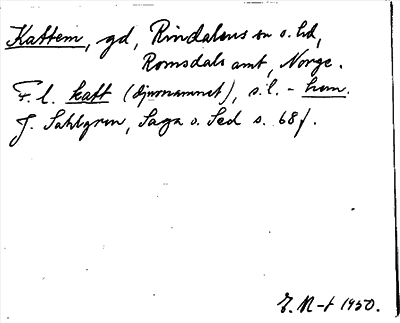 Kattem, gd, Rindalens sn o. hd,
Romsdals amt, Norge.
F. l. katt (djurnamnet), s. l. - hem.
J. Sahlgren, Saga o. Sed s. 68 f.
E. M-t 1950.